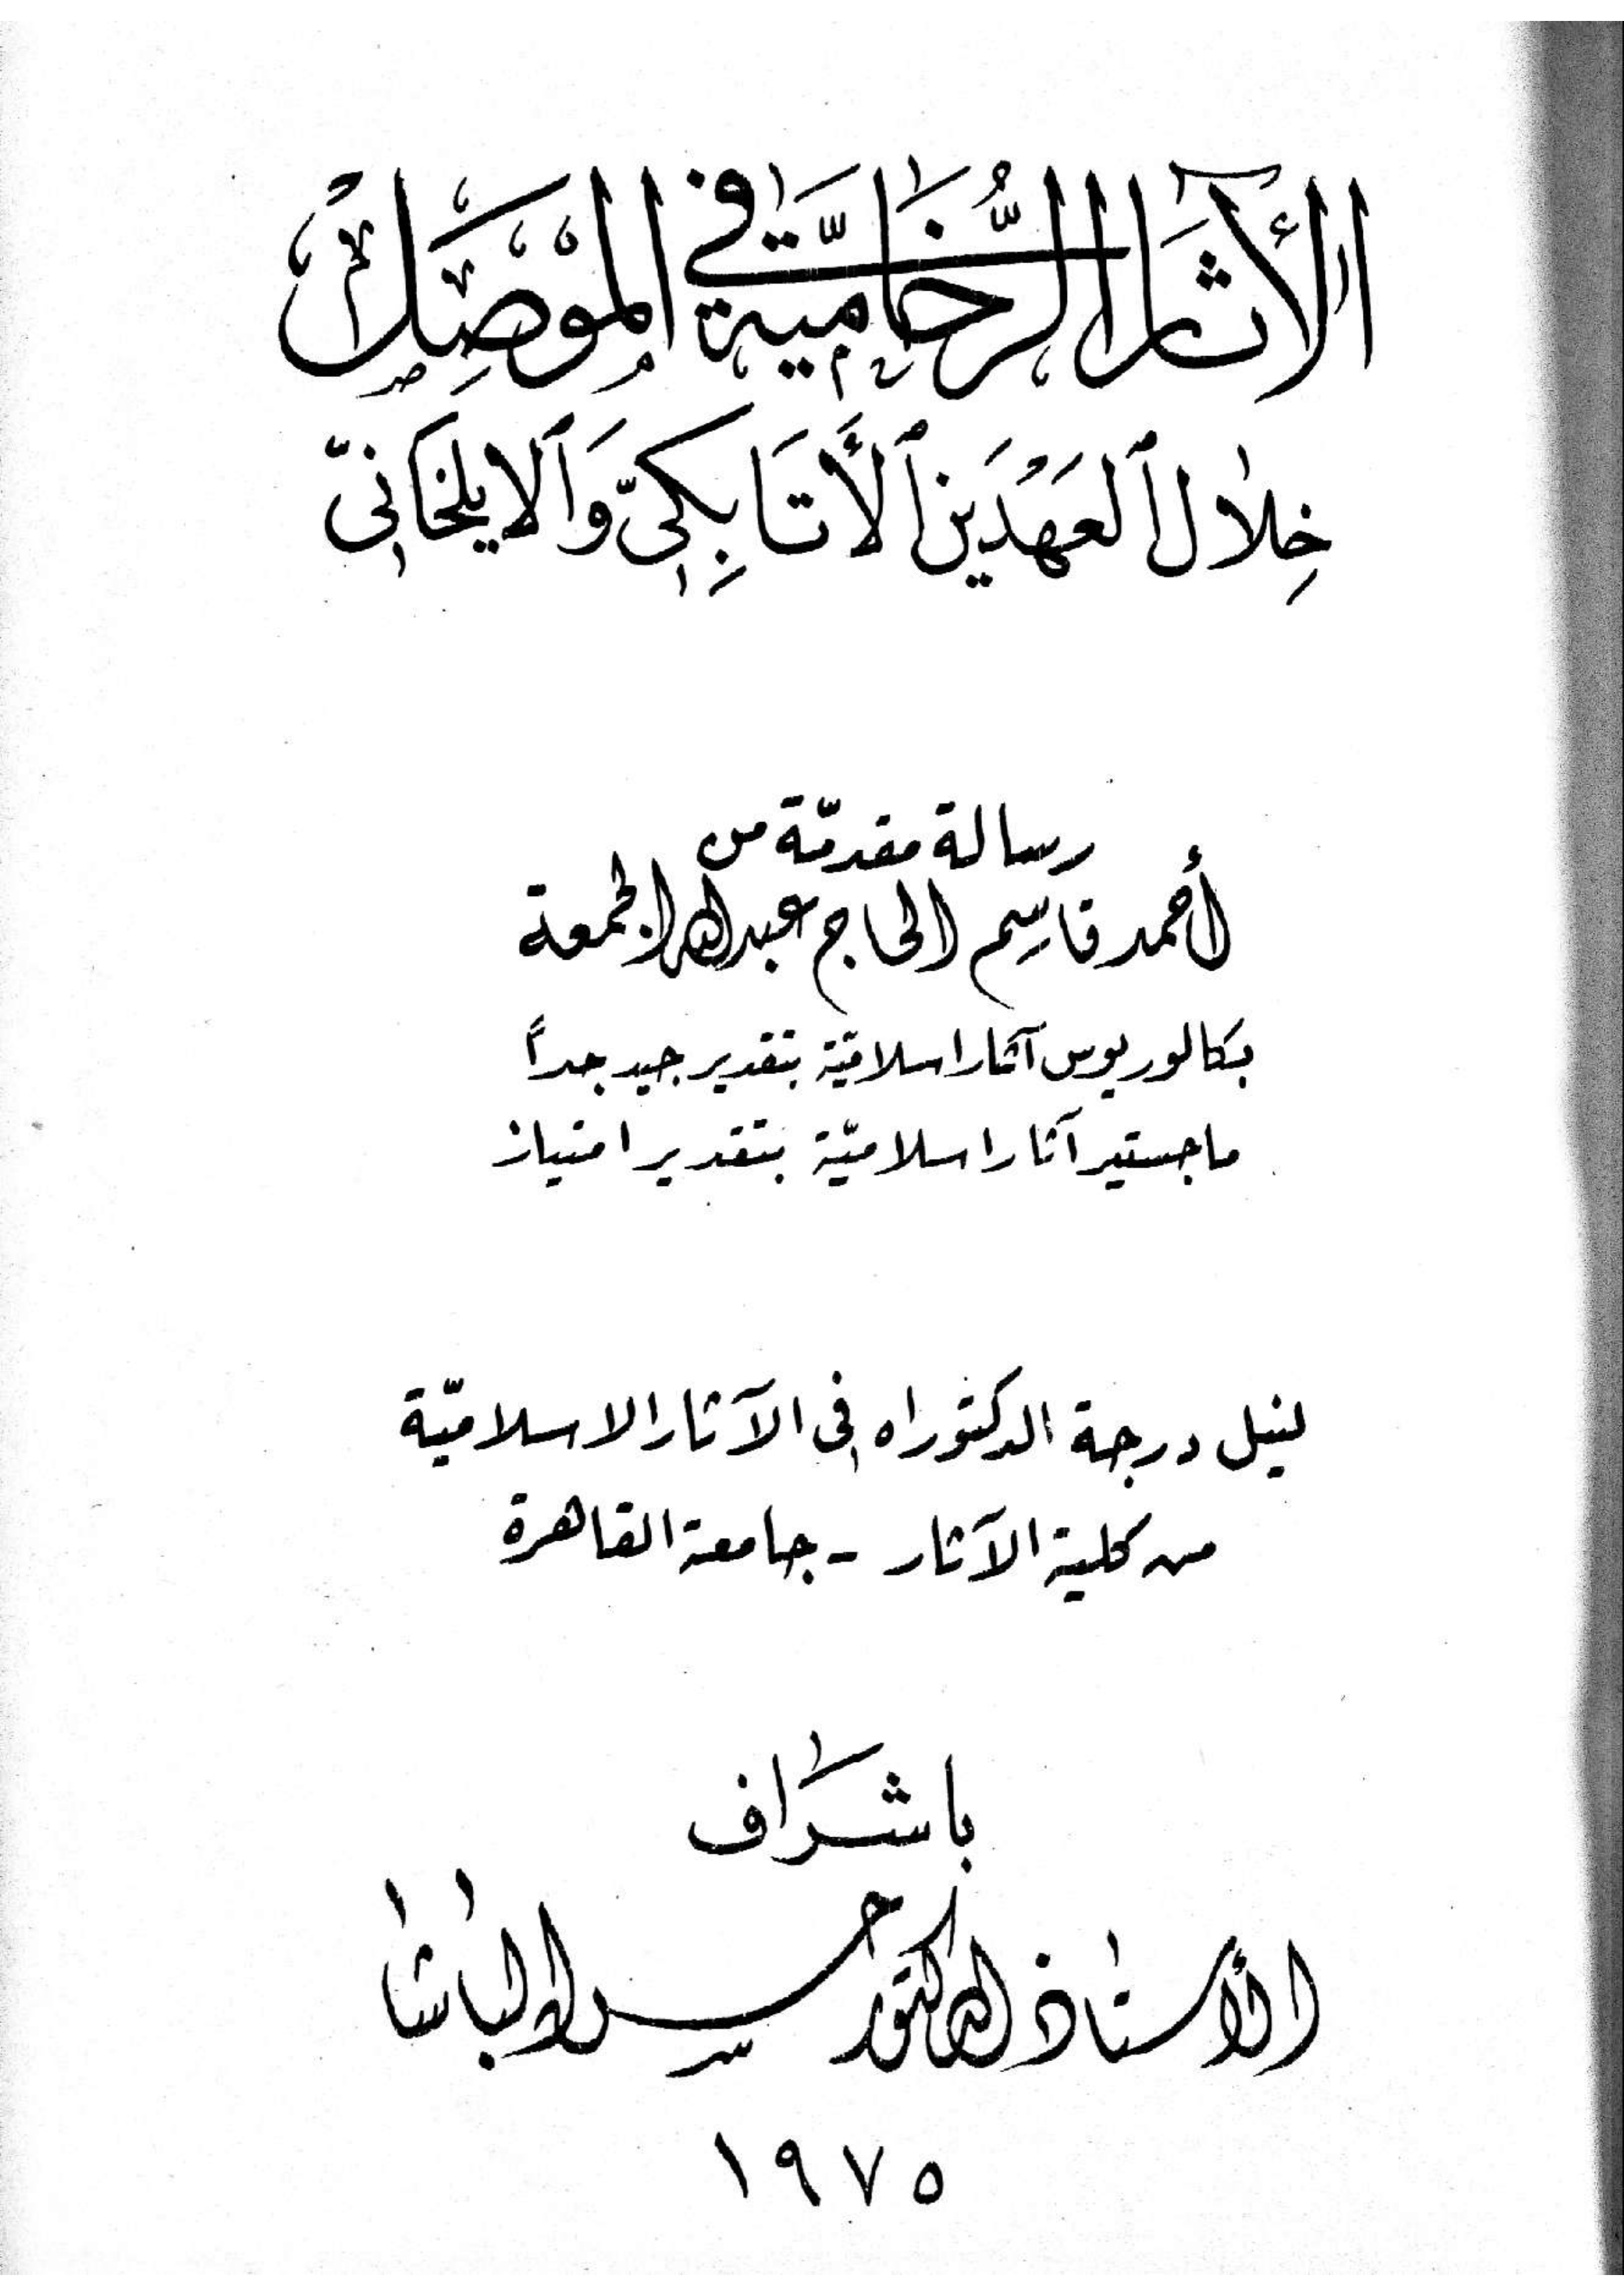 الآثار الرُّخاميَّة في المَوْصِل
خِلال ٱلعَهْدَين ٱلأَتَابِكيّ وَٱلايلخَانيّ
رسالة مقدمّة من
أحمد قاسِم الحاج عبدالله الجمعة
بكالوريوس آثار اسلاميّة بتقدير جيد جداً
ماجستير آثار اسلاميّة بتقدير امتياز
لنيل درجة الدكتوراه في الآثار الاسلاميّة
من كلية الآثار - جامعة القاهرة
باشَراف
الأستاذ الدكتور حسن الباشا
١٩٧٥